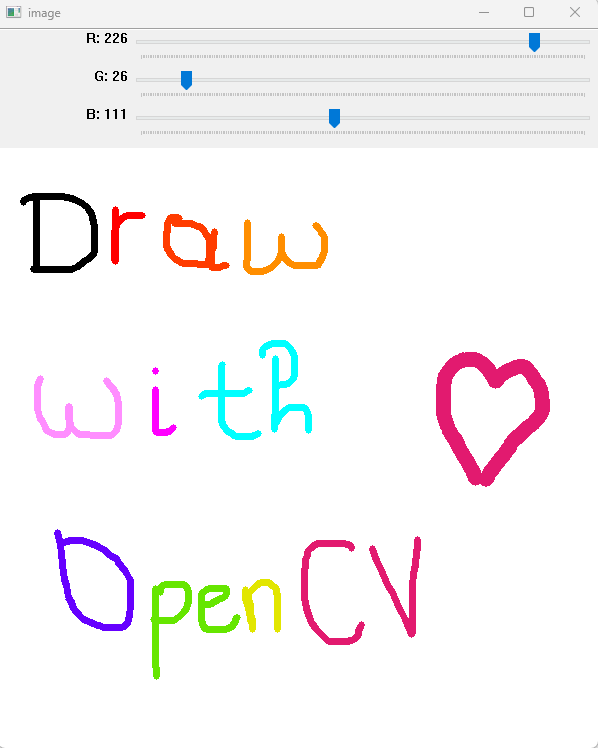 image
R: 226
G: 26
B: 111
Draw
with
OpenCV